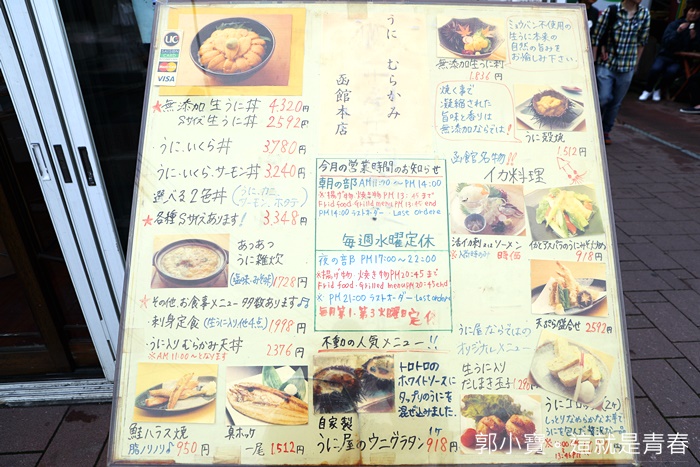 UC
MasterCard
VISA
★無添加生うに丼 4320円
Sサイズ生うに丼 2592円
・うに、いくら丼 3780円
・うに、いくら、サーモン丼 3240円
選べる2色丼
★各種Sサイズあります! 3,348円
あつあつ
うに雑炊
1728円
★その他、お食事メニュー多数あります♪
・刺身定食(生うに入り他4点) 1998円
・うに入りむらかみ天丼 2376円
※AM11:00〜となります
鮭ハラス焼
脂ノリノリ♪ 950円
真ホッケ
一尾 1,512円
うに むらかみ
函館本店
今月の営業時間のお知らせ
朝の部 AM 〜PM 14:00
※揚げ物・焼き物PM 13:15まで
Frid food・Grilled menu PM 13:15 end
PM14:00ラストオーダー Last ordere
毎週水曜定休
夜の部 PM 17:00〜22:00
※揚げ物・焼き物PM20:45まで
Frid food・Grilled menu PM20:45end
※ PM 21:00 ラストオーダー Last ordere
毎月第1・第3火曜日定休
不動の人気メニュー!!
トロトロの
ホワイトソースに
タップリのうにを
混ぜ込みました。
自家製
うに屋のウニグラタン 1ケ 918円
ミョウバン不使用の
生うに本来の
自然の旨みを
お愉しみ下さい。
無添加生うに刺
1,836円
焼く事で
凝縮された
旨味と香りは
無添加ならでは!
うに殻焼
1,512円
函館名物!!
イカ料理
活イカ刺
ソーメン
時価
918円
天ぷら盛合せ 2592円
うに屋ならではの
オリジナルメニュー
生うに入り
だしまき玉子
うにコロッケ(2ケ)
しっとりなめらかなお芋で
郭小寶
這就是青春